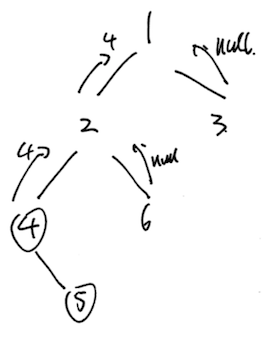 1
4
null.
2
3
4
null
4
6
5